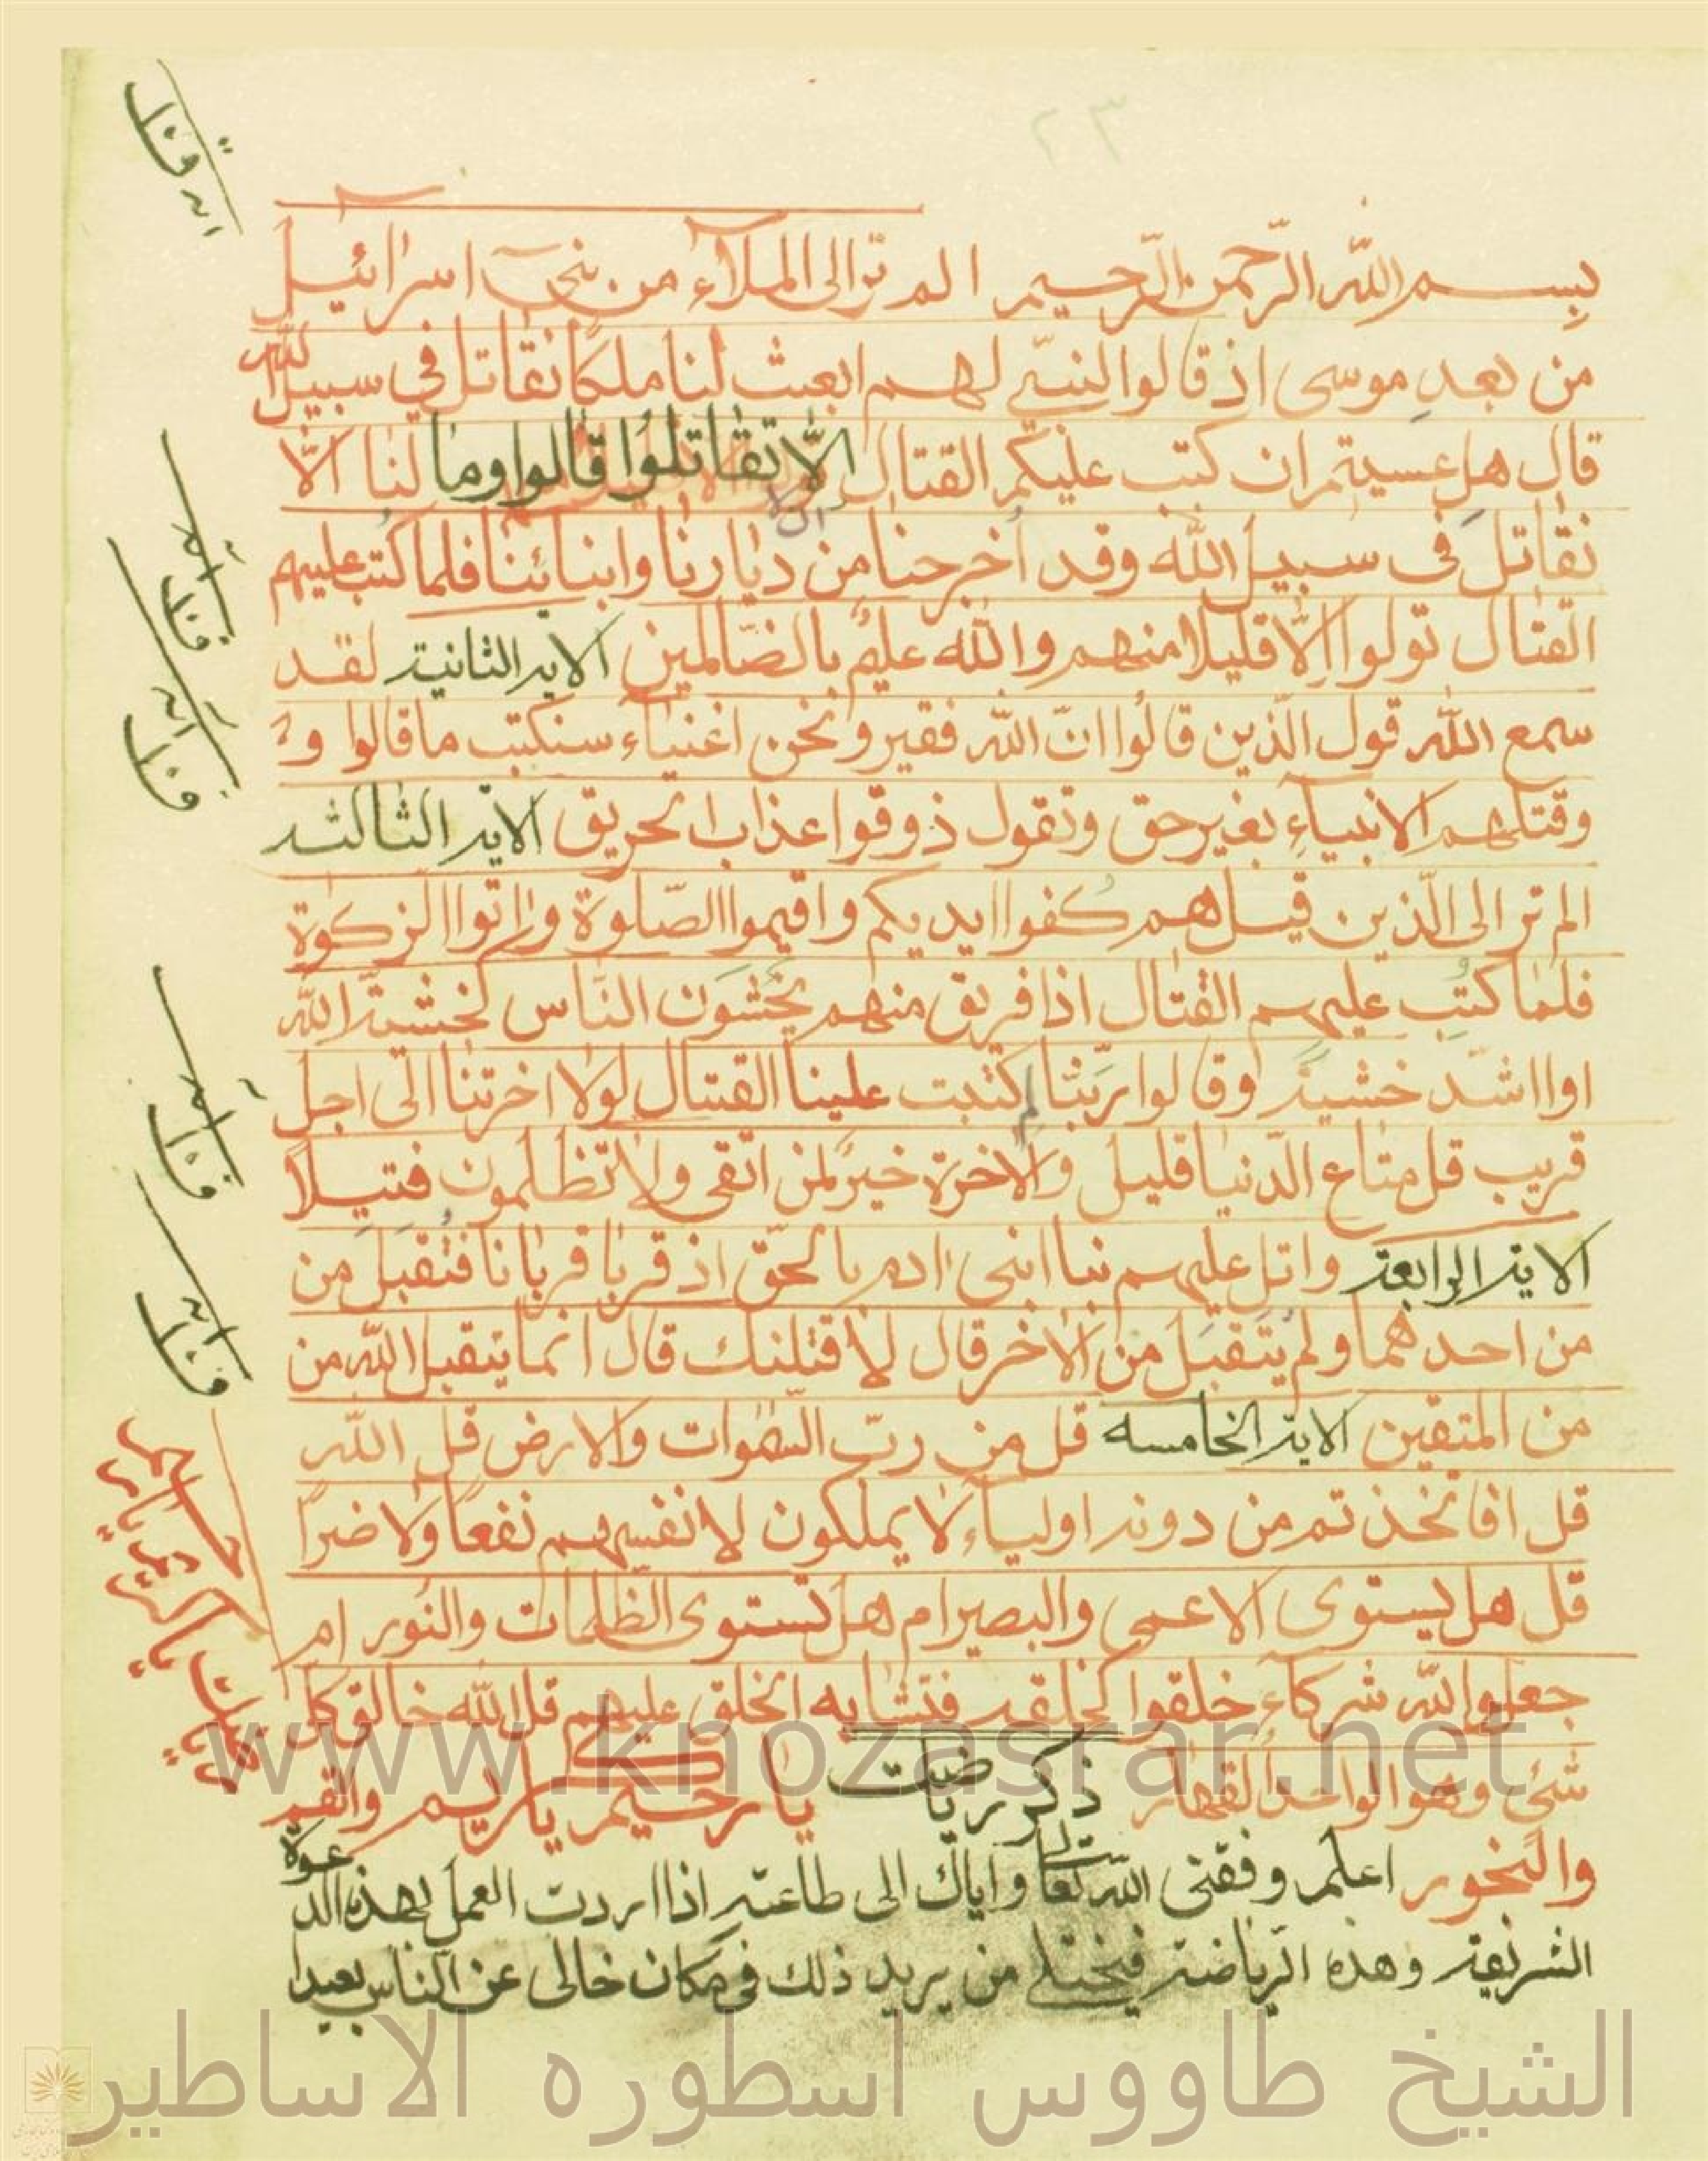 ٢٣
بسم الله الرّحمن الرّحيم الم تر الى الملاء من بنى اسرائيل
من بعد موسى اذ قالوا لنبىّ لهم ابعث لنا ملكا نقاتل فى سبيل الله
قال هل عسيتم ان كتب عليكم القتال الّا تقاتلوا قالوا وما لنا الّا
نقاتل فى سبيل الله وقد اخرجنا من ديارنا وابنائنا فلما كتب عليهم
القتال تولوا الّا قليلا منهم والله عليم بالضّالمين الايه الثانية لقد
سمع الله قول الّذين قالوا انّ الله فقير ونحن اغنياء سنكتب ما قالوا و
وقتلهم الانبياء بغير حق ونقول ذوقوا عذاب الحريق الايه الثالثه
الم تر الى الّذين قيل لهم كفوا ايديكم واقيموا الصّلوة واتوا الزكوة
فلما كتب عليهم القتال اذا فريق منهم يخشون النّاس كخشية الله
او اشدّ خشية وقالوا ربّنا لم كتبت علينا القتال لولا اخرتنا الى اجل
قريب قل متاع الدّنيا قليل والاخرة خير لمن اتقى ولا تظلمون فتيلا
الاية الرابعة واتل عليهم نبا ابنى ادم بالحقّ اذ قربا قربانا فتقبل من
من احدهما ولم يتقبل من الاخر قال لاقتلنك قال انما يتقبل الله من
من المتقين الاية الخامسه قل من ربّ السّموات والارض قل الله
قل افاتخذتم من دونه اولياء لا يملكون لانفسهم نفعا ولا ضرا
قل هل يستوى الاعمى والبصير ام هل تستوى الظّلمات والنور ام
جعلوا لله شركاء خلقوا كخلقه فتشابه الخلق عليهم قل الله خالق كل
شئ وهو الواحد القهار ذكر رياضت يا رحيم يا كريم والقم
والبخور اعلم وفقنى الله تعالى واياك الى طاعته اذا اردت العمل بهذه الدعوة
الشريفة وهذه الرياضة فيختلى من يريد ذلك فى مكان خالى عن الناس بعيدا
ايه قتل
ايه قتل
ايه قتل
ايه قتل
ايه قتل
www.knozasrar.net
الشيخ طاووس اسطوره الاساطير